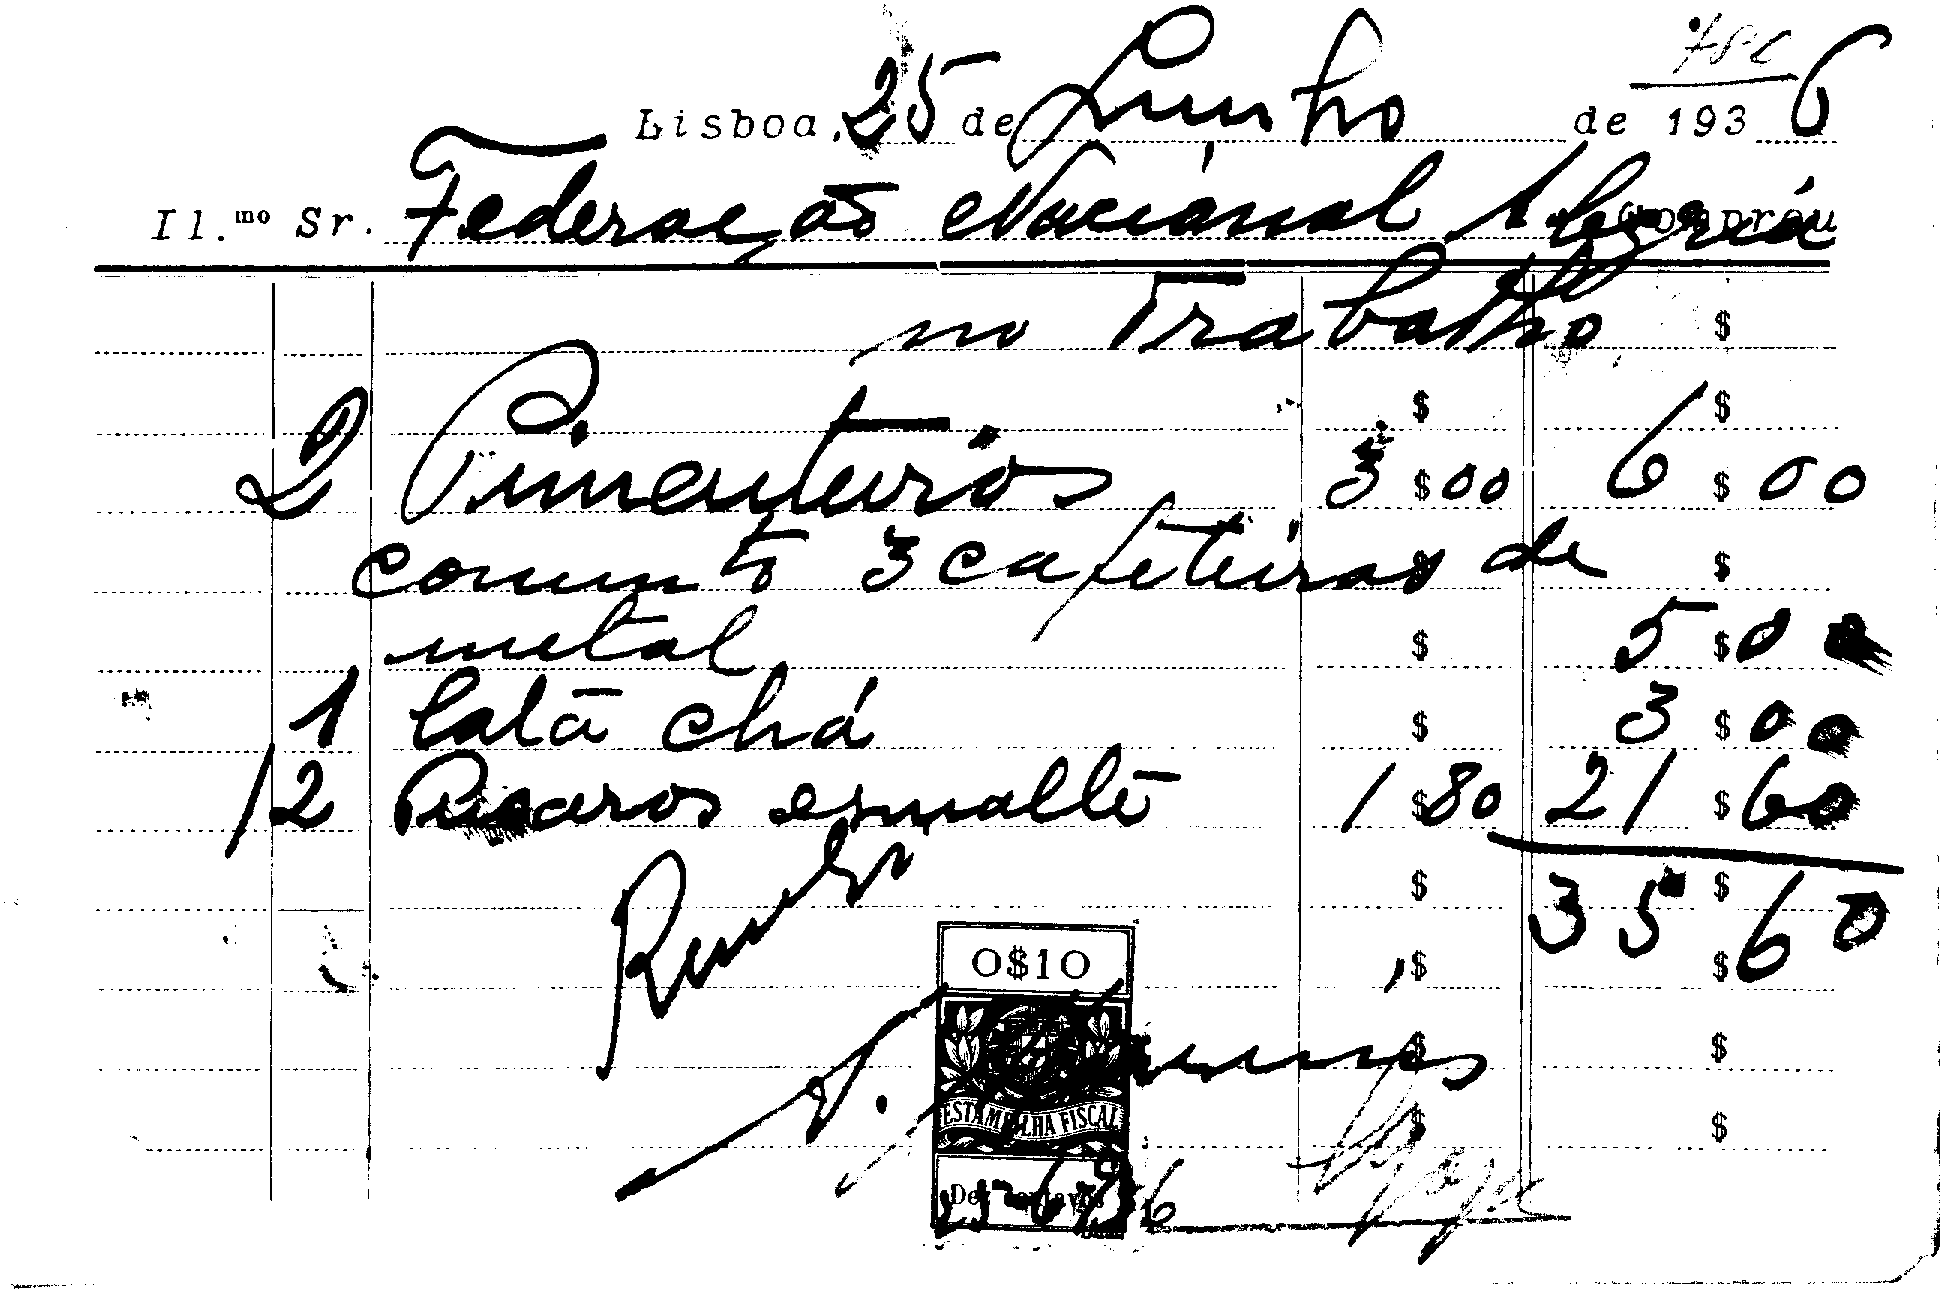 Lisboa, 25 de Junho de 1936
Il.mo Sr. Federação Nacional Alegria
no Trabalho $
$ $
2 Pimenteiros 3$00 6$00
3 cafeteiras de $
metal $ 5$00
1 lata chá $ 3$00
12 Pucaros esmalte 1$80 21$60
$ 35$60
0$10
ESTAMPILHA FISCAL